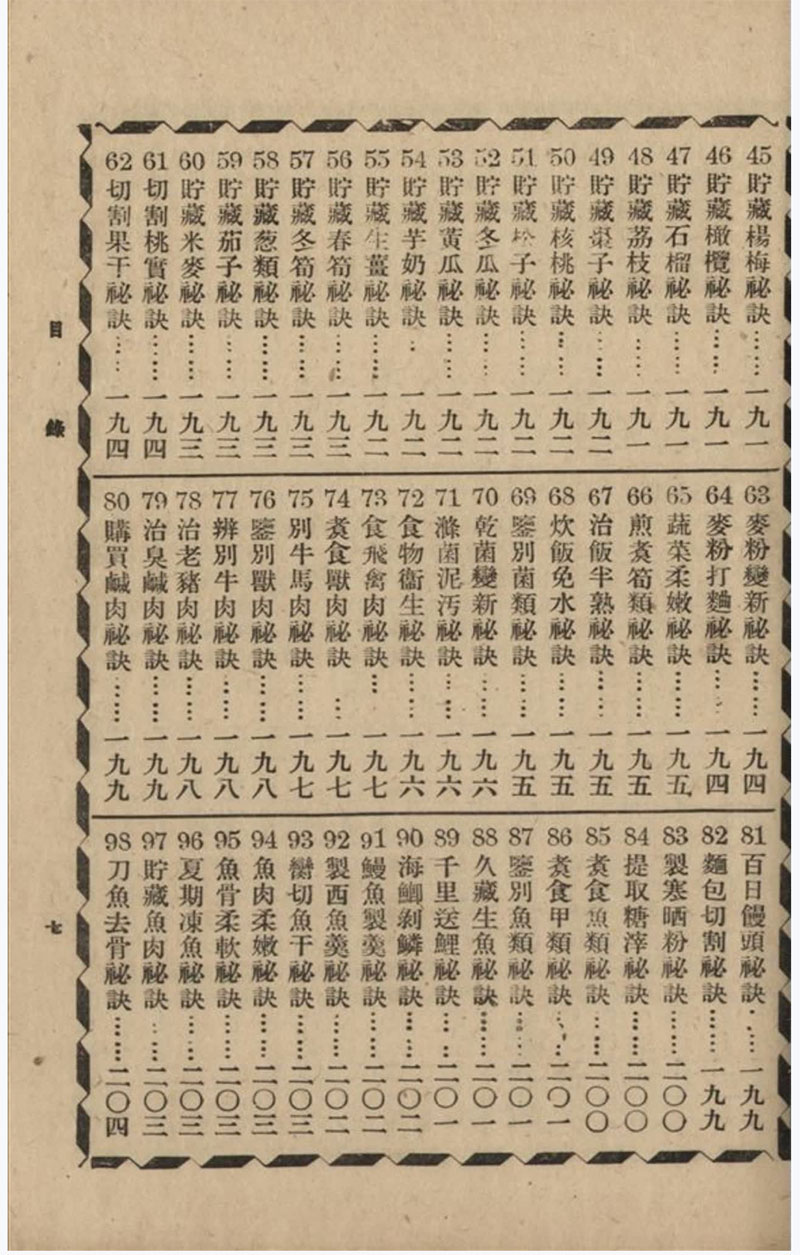 45貯藏楊梅祕訣……一九一
46貯藏橄欖祕訣……一九一
47貯藏石榴祕訣……一九一
48貯藏荔枝祕訣……一九一
49貯藏棗子祕訣……一九二
50貯藏核桃祕訣……一九二
51貯藏松子祕訣……一九二
52貯藏冬瓜祕訣……一九二
53貯藏黃瓜祕訣……一九二
54貯藏芋奶祕訣……一九二
55貯藏生薑祕訣……一九二
56貯藏春筍祕訣……一九三
57貯藏冬筍祕訣……一九三
58貯藏葱類祕訣……一九三
59貯藏茄子祕訣……一九三
60貯藏米麥祕訣……一九三
61切割桃實祕訣……一九四
62切割果干祕訣……一九四
63麥粉變新祕訣……一九四
64麥粉打麵祕訣……一九四
65蔬菜柔嫩祕訣……一九五
66煎煑筍類祕訣……一九五
67治飯半熟祕訣……一九五
68炊飯免水祕訣……一九五
69鑒別菌類祕訣……一九五
70乾菌變新祕訣……一九六
71滌菌泥汚祕訣……一九六
72食物衞生祕訣……一九六
73食飛禽肉祕訣……一九七
74煑食獸肉祕訣……一九七
75別牛馬肉祕訣……一九七
76鑒別獸肉祕訣……一九八
77辨別牛肉祕訣……一九八
78治老豬肉祕訣……一九八
79治臭鹹肉祕訣……一九九
80購買鹹肉祕訣……一九九
81百日饅頭祕訣……一九九
82麵包切割祕訣……一九九
83製寒晒粉祕訣……二〇〇
84提取糖滓祕訣……二〇〇
85煑食魚類祕訣……二〇〇
86煑食甲類祕訣……二〇一
87鑒別魚類祕訣……二〇一
88久藏生魚祕訣……二〇一
89千里送鯉祕訣……二〇一
90海鯽剝鱗祕訣……二〇二
91鰻魚製羹祕訣……二〇二
92製西魚羹祕訣……二〇二
93臠切魚干祕訣……二〇三
94魚肉柔嫩祕訣……二〇三
95魚骨柔軟祕訣……二〇三
96夏期凍魚祕訣……二〇三
97貯藏魚肉祕訣……二〇三
98刀魚去骨祕訣……二〇四
目錄
七